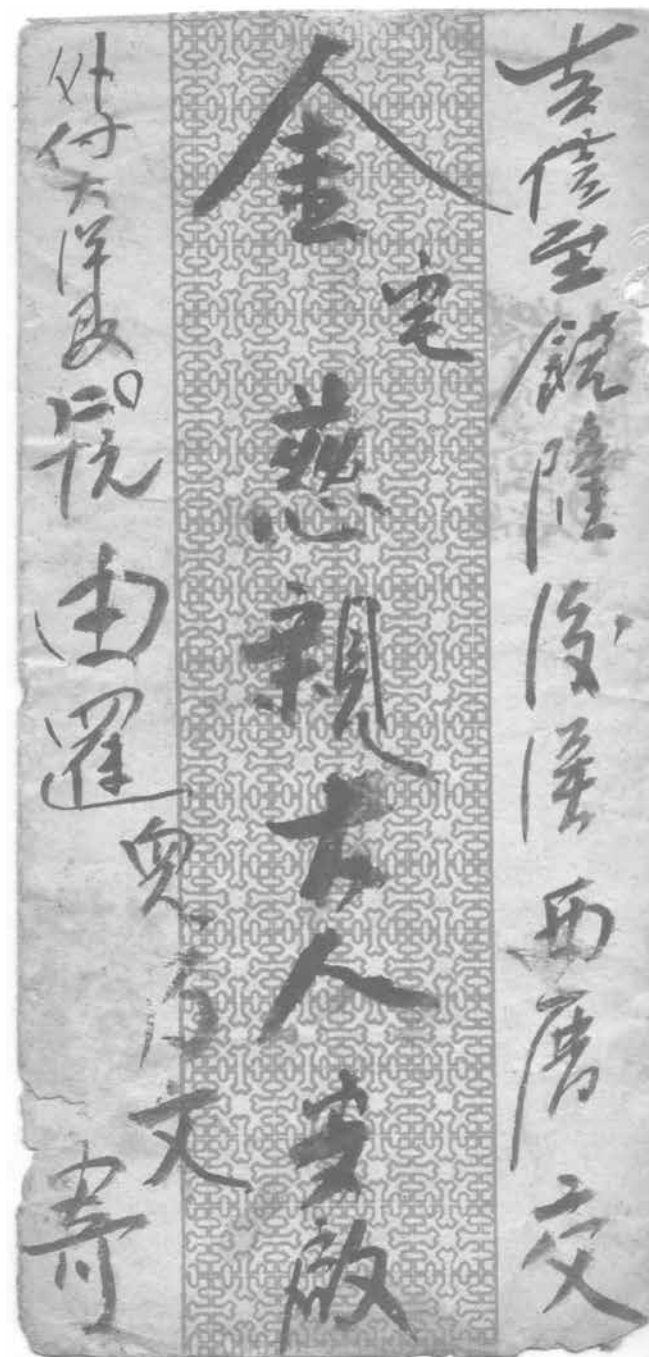 吉信至饒隆後溪西厝交
金宅慈親大人安啟
外付大洋
由暹兒乃文寄